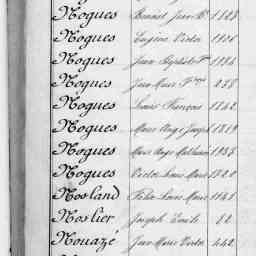 Nogues Bonnet Jean
Nogues Eugène Victor
Nogues Jean Baptiste
Nogues Jean Marie
Nogues Louis François 1842
Nogues Marie Ange Joseph 1819
Nogues Marie Ange Mathurin
Nogues Victor Louis Marie 1820
Nosland Félix Louis Marie
Noslier Joseph Emile
Nouazé Jean Marie Victor 442